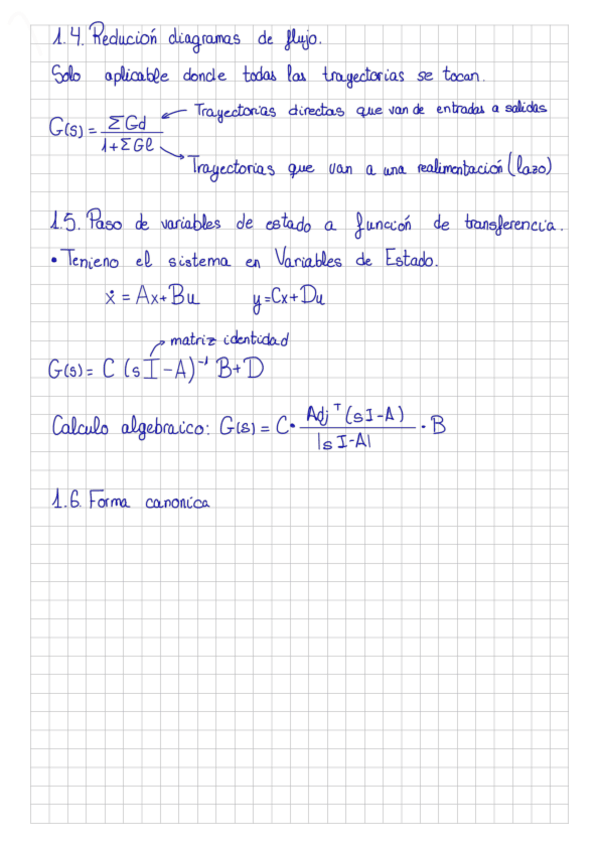 1.4. Redución diagramas de flujo.
Solo aplicable donde todas las trayectorias se tocan.
G(s) = ΣGd / 1+ΣGl
Trayectorias directas que van de entradas a salidas
Trayectorias que van a una realimentación (lazo)
1.5. Paso de variables de estado a función de transferencia.
• Tenieno el sistema en Variables de Estado.
ẋ = Ax+Bu y=Cx+Du
matriz identidad
G(s) = C (sI-A)⁻¹ B+D
Calculo algebraico: G(s) = C· Adjᵀ(sI-A) / |sI-A| · B
1.6. Forma canonica